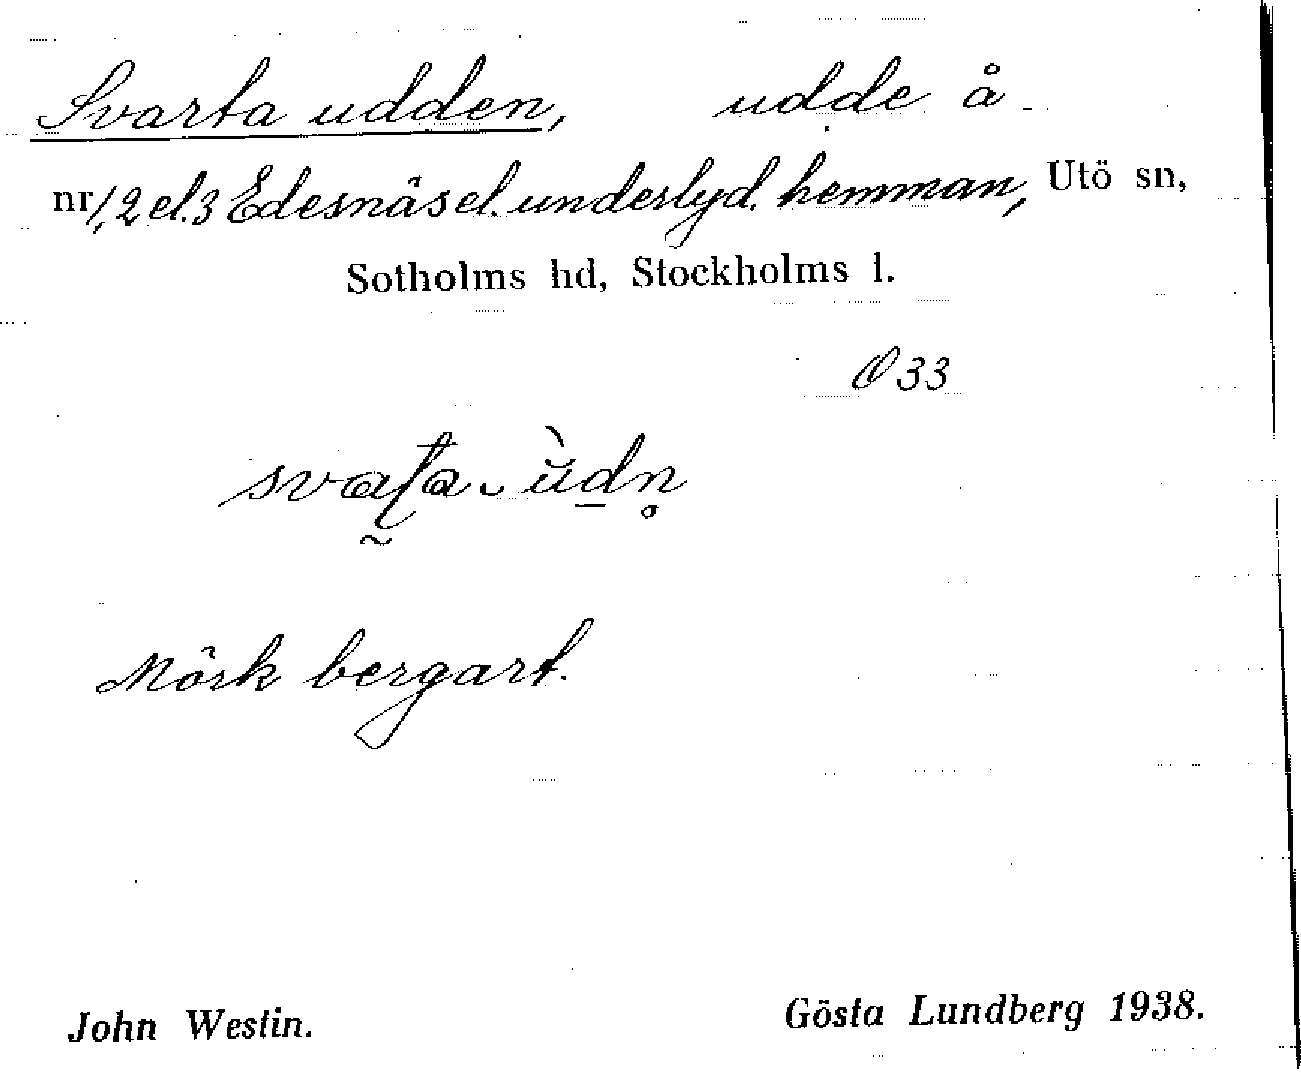 Svarta udden, udde å
nr 1, 2 el. 3 Edesnäs el. underlyd. hemman, Utö sn,
Sotholms hd, Stockholms l.
Ö 33
Mörk bergart.
John Westin. Gösta Lundberg 1938.